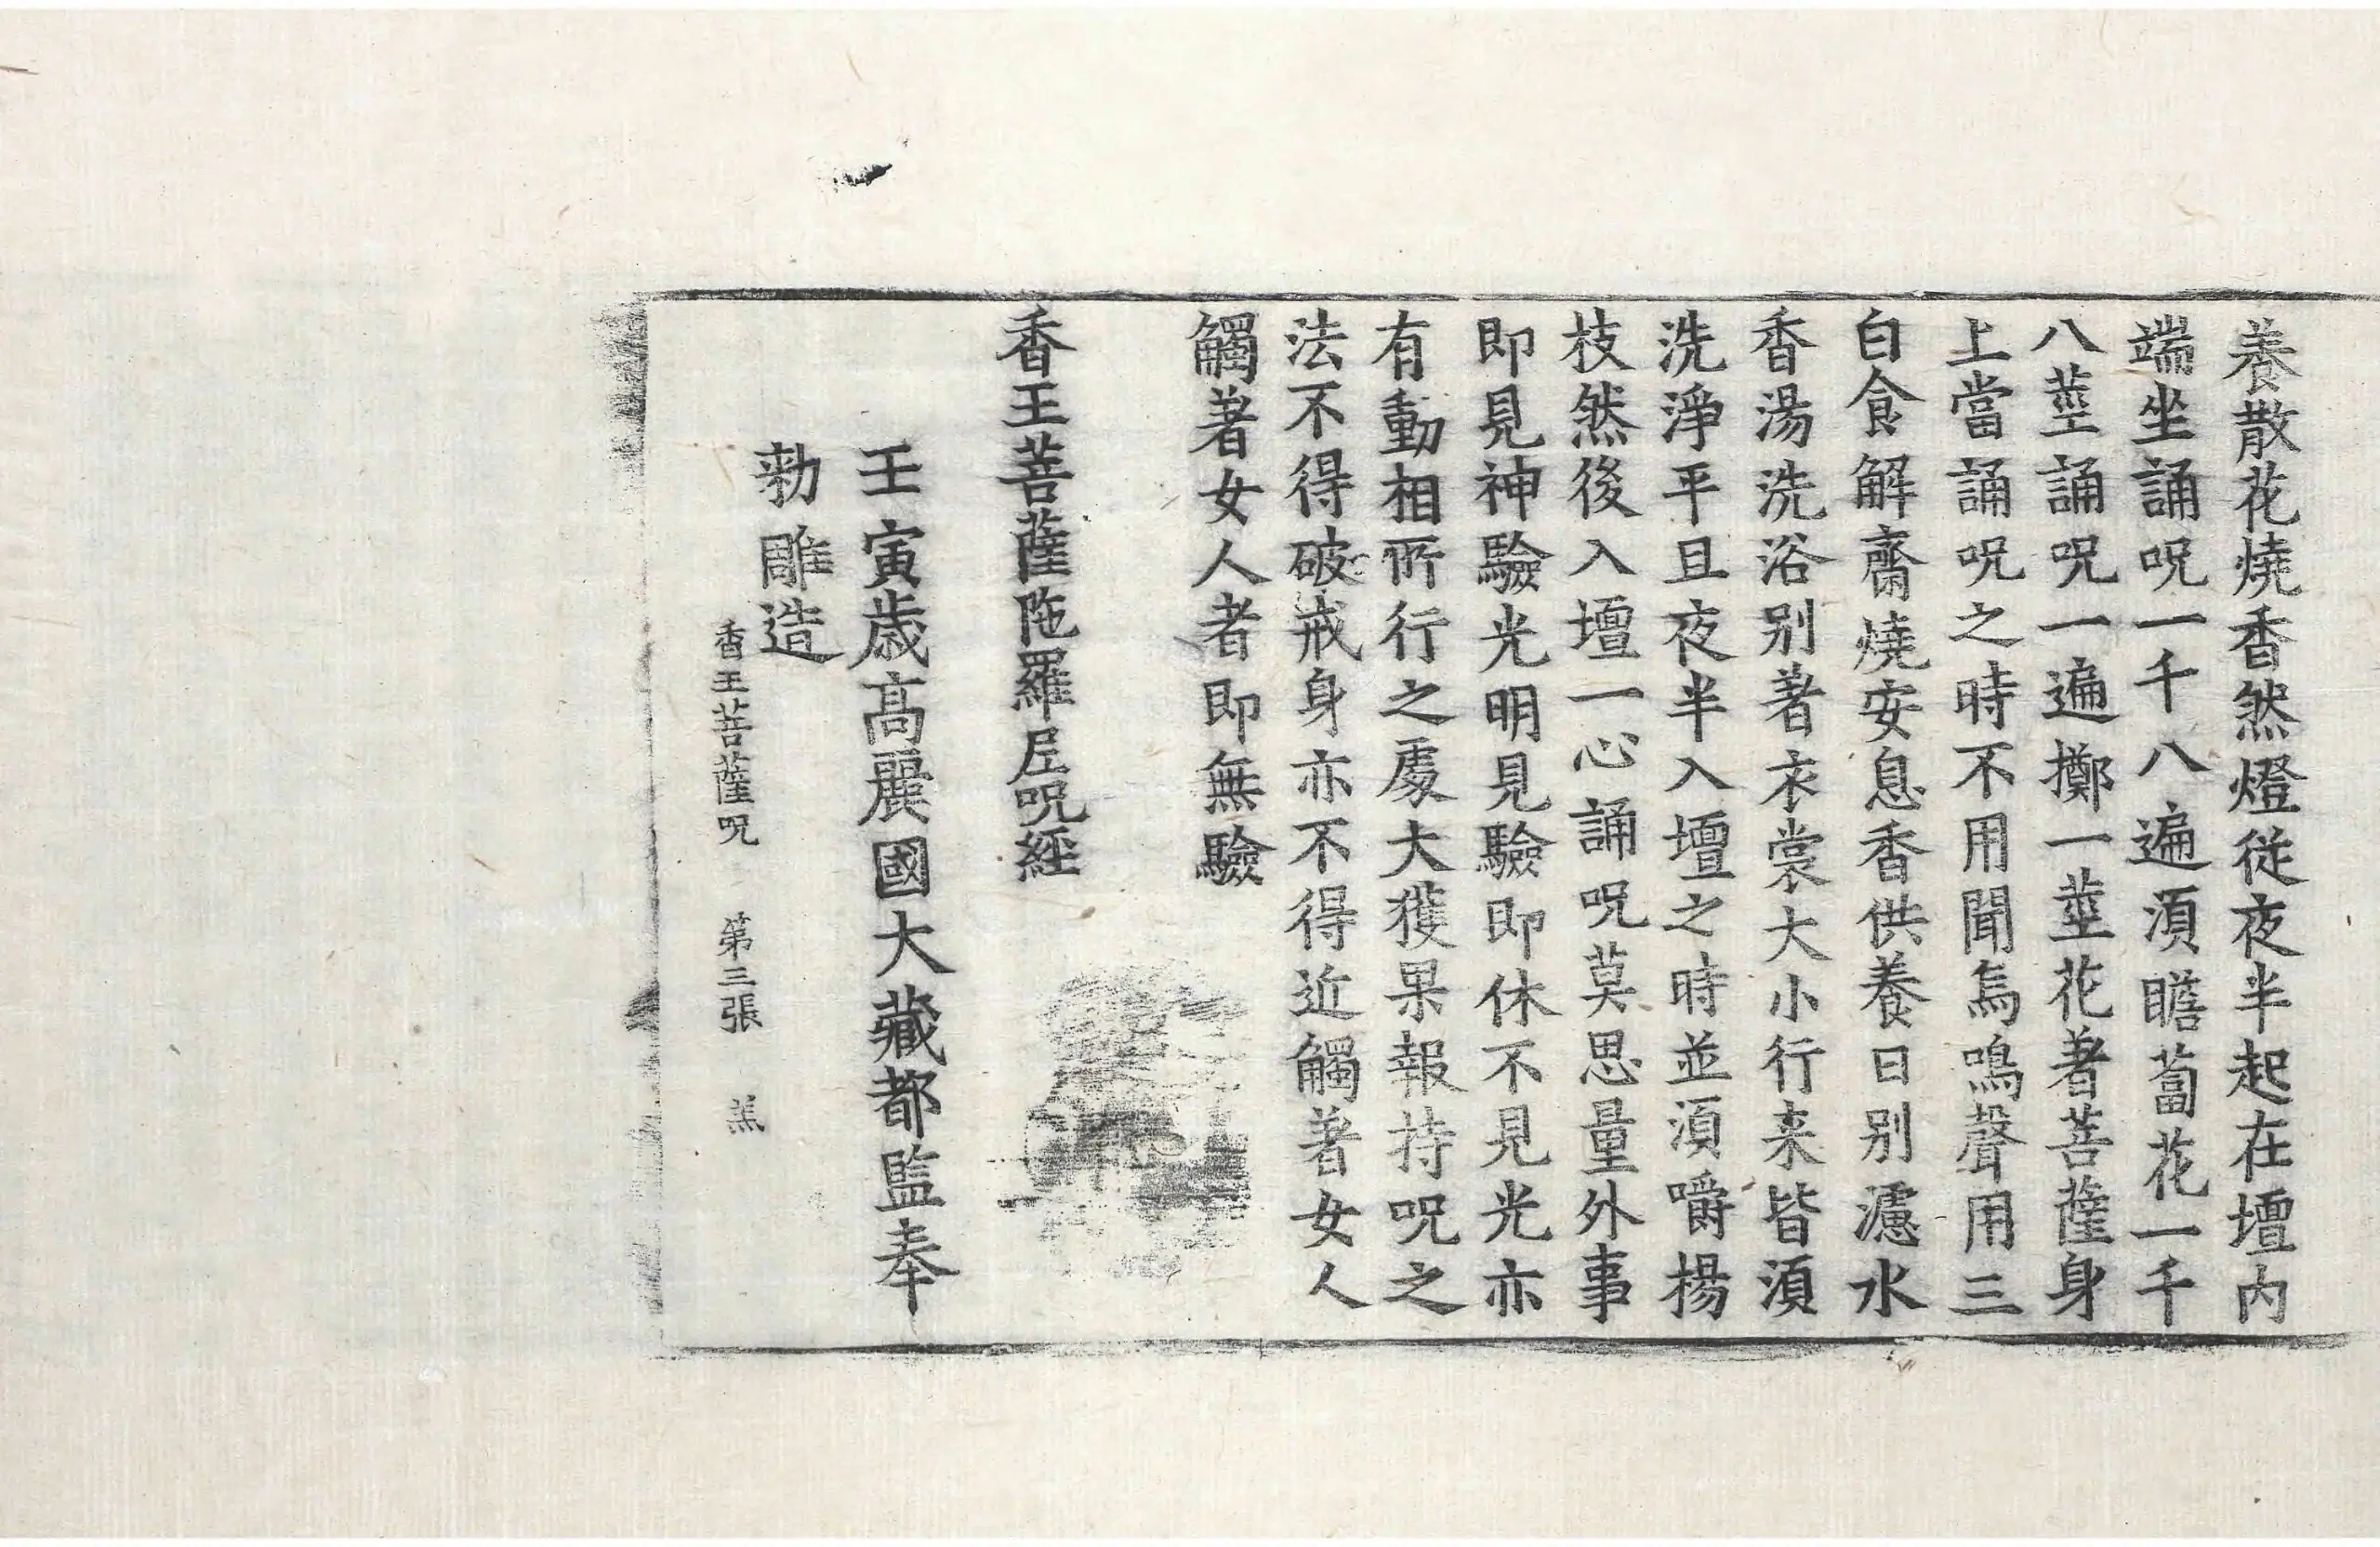 養散花燒香然燈從夜半起在壇內
端坐誦呪一千八遍須瞻蔔花一千
八莖誦呪一遍擲一莖花著菩薩身
上當誦呪之時不用聞烏鳴聲用三
白食解齋燒安息香供養日別濾水
香湯洗浴別著衣裳大小行来皆須
洗淨平旦夜半入壇之時並須嚼楊
枝然後入壇一心誦呪莫思量外事
即見神驗光明見驗即休不見光亦
有動相所行之處大獲果報持呪之
法不得破戒身亦不得近觸著女人
觸著女人者即無驗
香王菩薩陁羅尼呪經
壬寅歲高麗國大藏都監奉
勑雕造
香王菩薩呪 第三張 羔